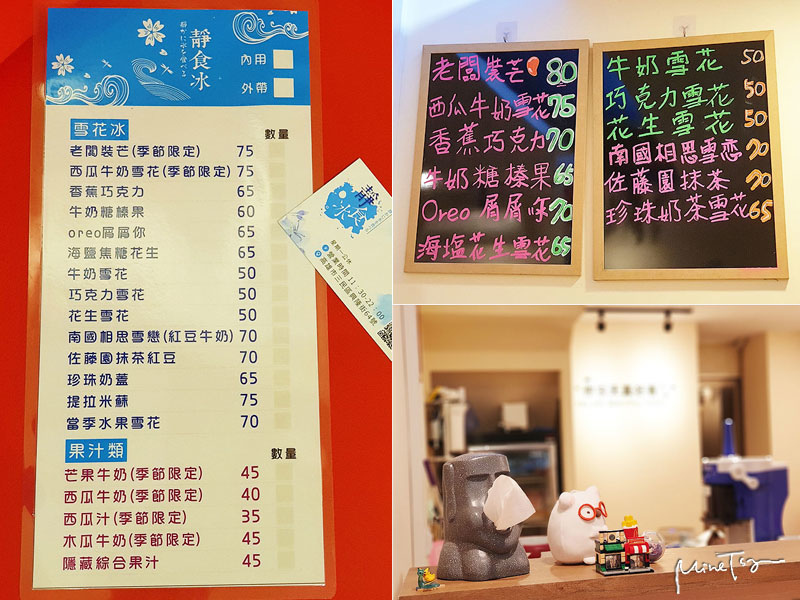 靜食冰
静かに氷を食べる
內用
外帶
雪花冰 數量
老闆裝芒(季節限定) 75
西瓜牛奶雪花(季節限定) 75
香蕉巧克力 65
牛奶糖榛果 60
oreo屑屑你 65
海鹽焦糖花生 65
牛奶雪花 50
巧克力雪花 50
花生雪花 50
南國相思雪戀(紅豆牛奶) 70
佐藤園抹茶紅豆 70
珍珠奶蓋 65
提拉米蘇 75
當季水果雪花 70
果汁類 數量
芒果牛奶(季節限定) 45
西瓜牛奶(季節限定) 40
西瓜汁(季節限定) 35
木瓜牛奶(季節限定) 45
隱藏綜合果汁 45
靜食冰
星期一公休
營業時間 11:30-22:00
高雄市三民區興隆街64號
老闆裝芒 80
西瓜牛奶雪花 75
香蕉巧克力 70
牛奶糖榛果 65
Oreo屑屑你 70
海塩花生雪花 65
牛奶雪花 50
巧克力雪花 50
花生雪花 50
南國相思雪恋 70
佐藤園抹茶 70
珍珠奶茶雪花 65